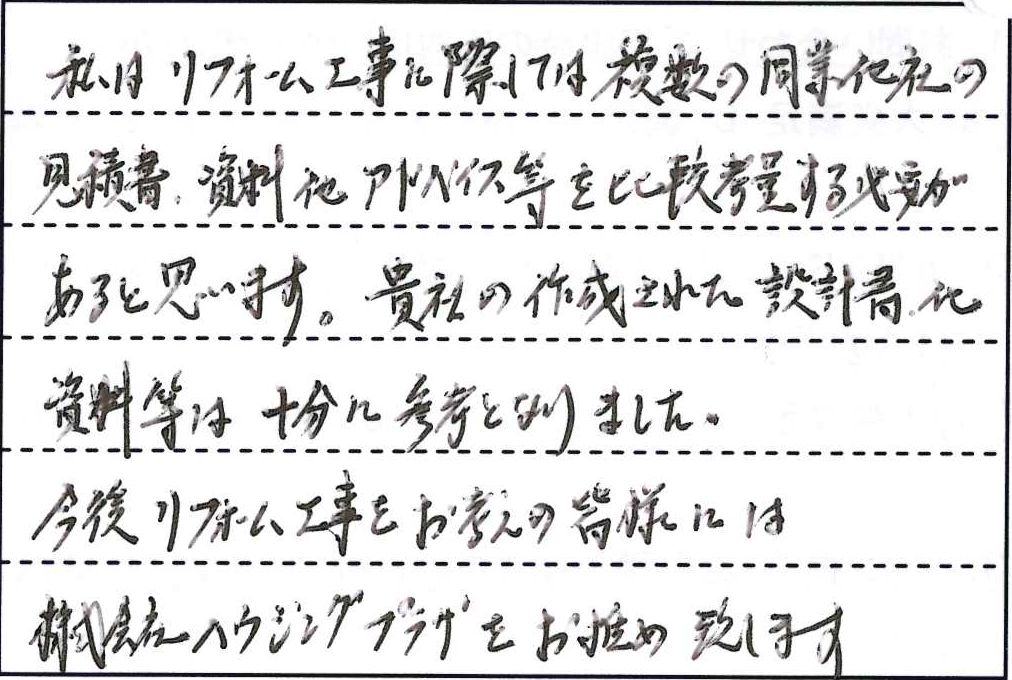 私はリフォーム工事に際しては複数の同業他社の
見積書、資料他アドバイス等を比較考量する必要が
あると思います。貴社の作成された設計書、他
資料等は十分に参考となりました。
今後リフォーム工事をお考えの皆様には
株式会社ハウジングプラザをお推め致します